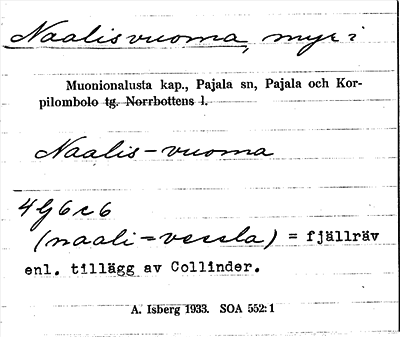 Naalisvuoma, myr i
Muonionalusta kap., Pajala sn, Pajala och Kor-
pilombolo tg. Norrbottens l.
Naalis-vuoma
4G6c6
(naali = vessla) = fjällräv
enl. tillägg av Collinder.
A. Isberg 1933. SOA 552:1